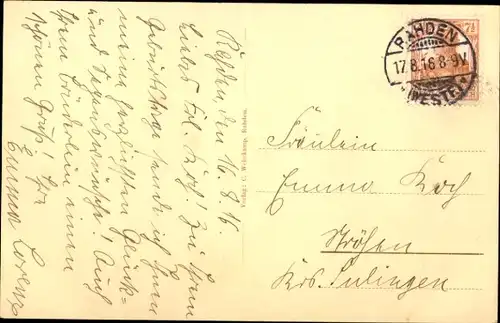 Rahden, den 16.8.16.
Liebes Frl. Koch! Zu Ihrem
Geburtstage sende ich Ihnen
meine herzlichsten Glück-
und Segenswünsche! Auch
Ihrem Brüderlein einen
schönen Gruß! Ihre
Emma Lorenz
Verlag: C. Rahden.
7½
RAHDEN
17.8.16.8-9V.
(WESTF.)
Fräulein
Emma Koch
Ströhen
Krs. Sulingen